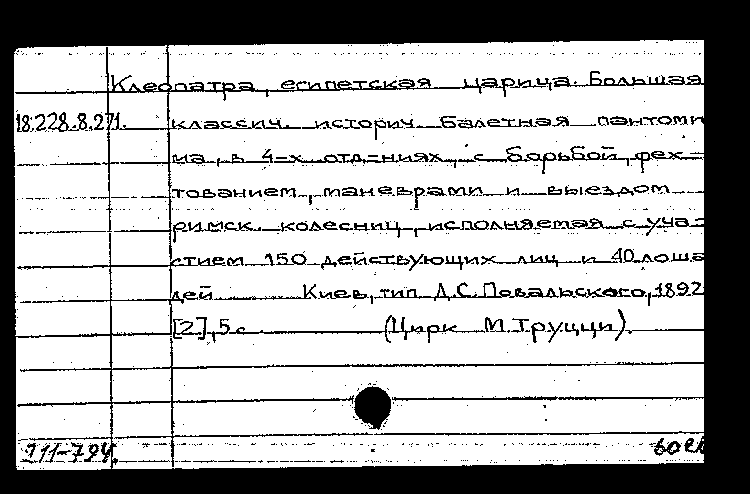 Клеопатра, египетская царица. Большая
18.228.8.271. классич. историч. балетная пантоми
ма, в 4-х отд-ниях, с борьбой, фех-
тованием, маневрами и выездом
римск. колесниц, исполняемая с уча-
стием 150 действующих лиц и 40 лоша
дей Киев, тип. Д.С. Повальского, 1892
[2], 5 с. (Цирк М. Труцци).